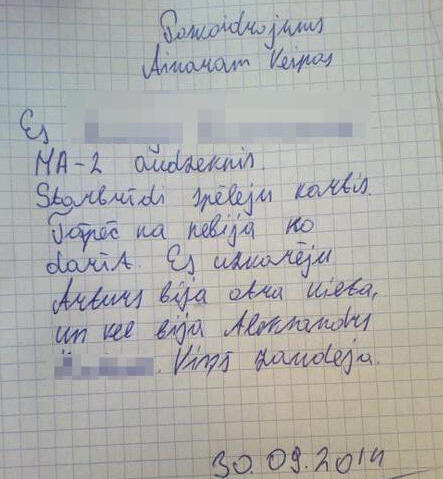 Paskaidrojums
Ainaram Veipas
Es
MA-2 audzeknis.
Starbrīdi spēleju kartis.
Tāpēc ka nebija ko
darīt. Es uzvarēju
Arturs bija otra vieta,
un vel bija Aleksandrs
Viņš zaudēja.
30.09.2014